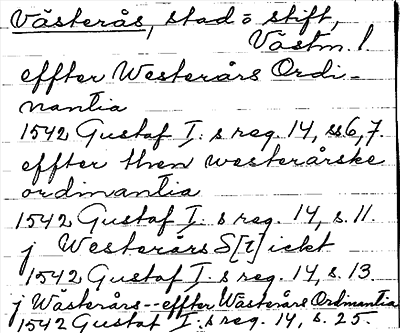 Västerås, stad o stift,
Västm. l.
effter Westerårs Ordi-
nantia
1542 Gustaf I:s reg. 14, ss 6, 7.
effter then westerårske
ordinantia
1542 Gustaf I:s reg. 14, s. 11.
j Westerårs S[t]ickt
1542 Gustaf I:s reg. 14, s. 13.
j Wästerårs--effter Wästerårs Ordinantia
1542 Gustaf I:s reg. 14, s. 25.